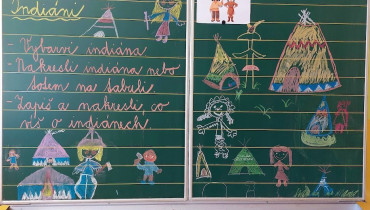 Indiáni
- Vybarvi indiána
- Nakresli indiána nebo
totem na tabuli
- Zapiš a nakresli, co
víš o indiánech.